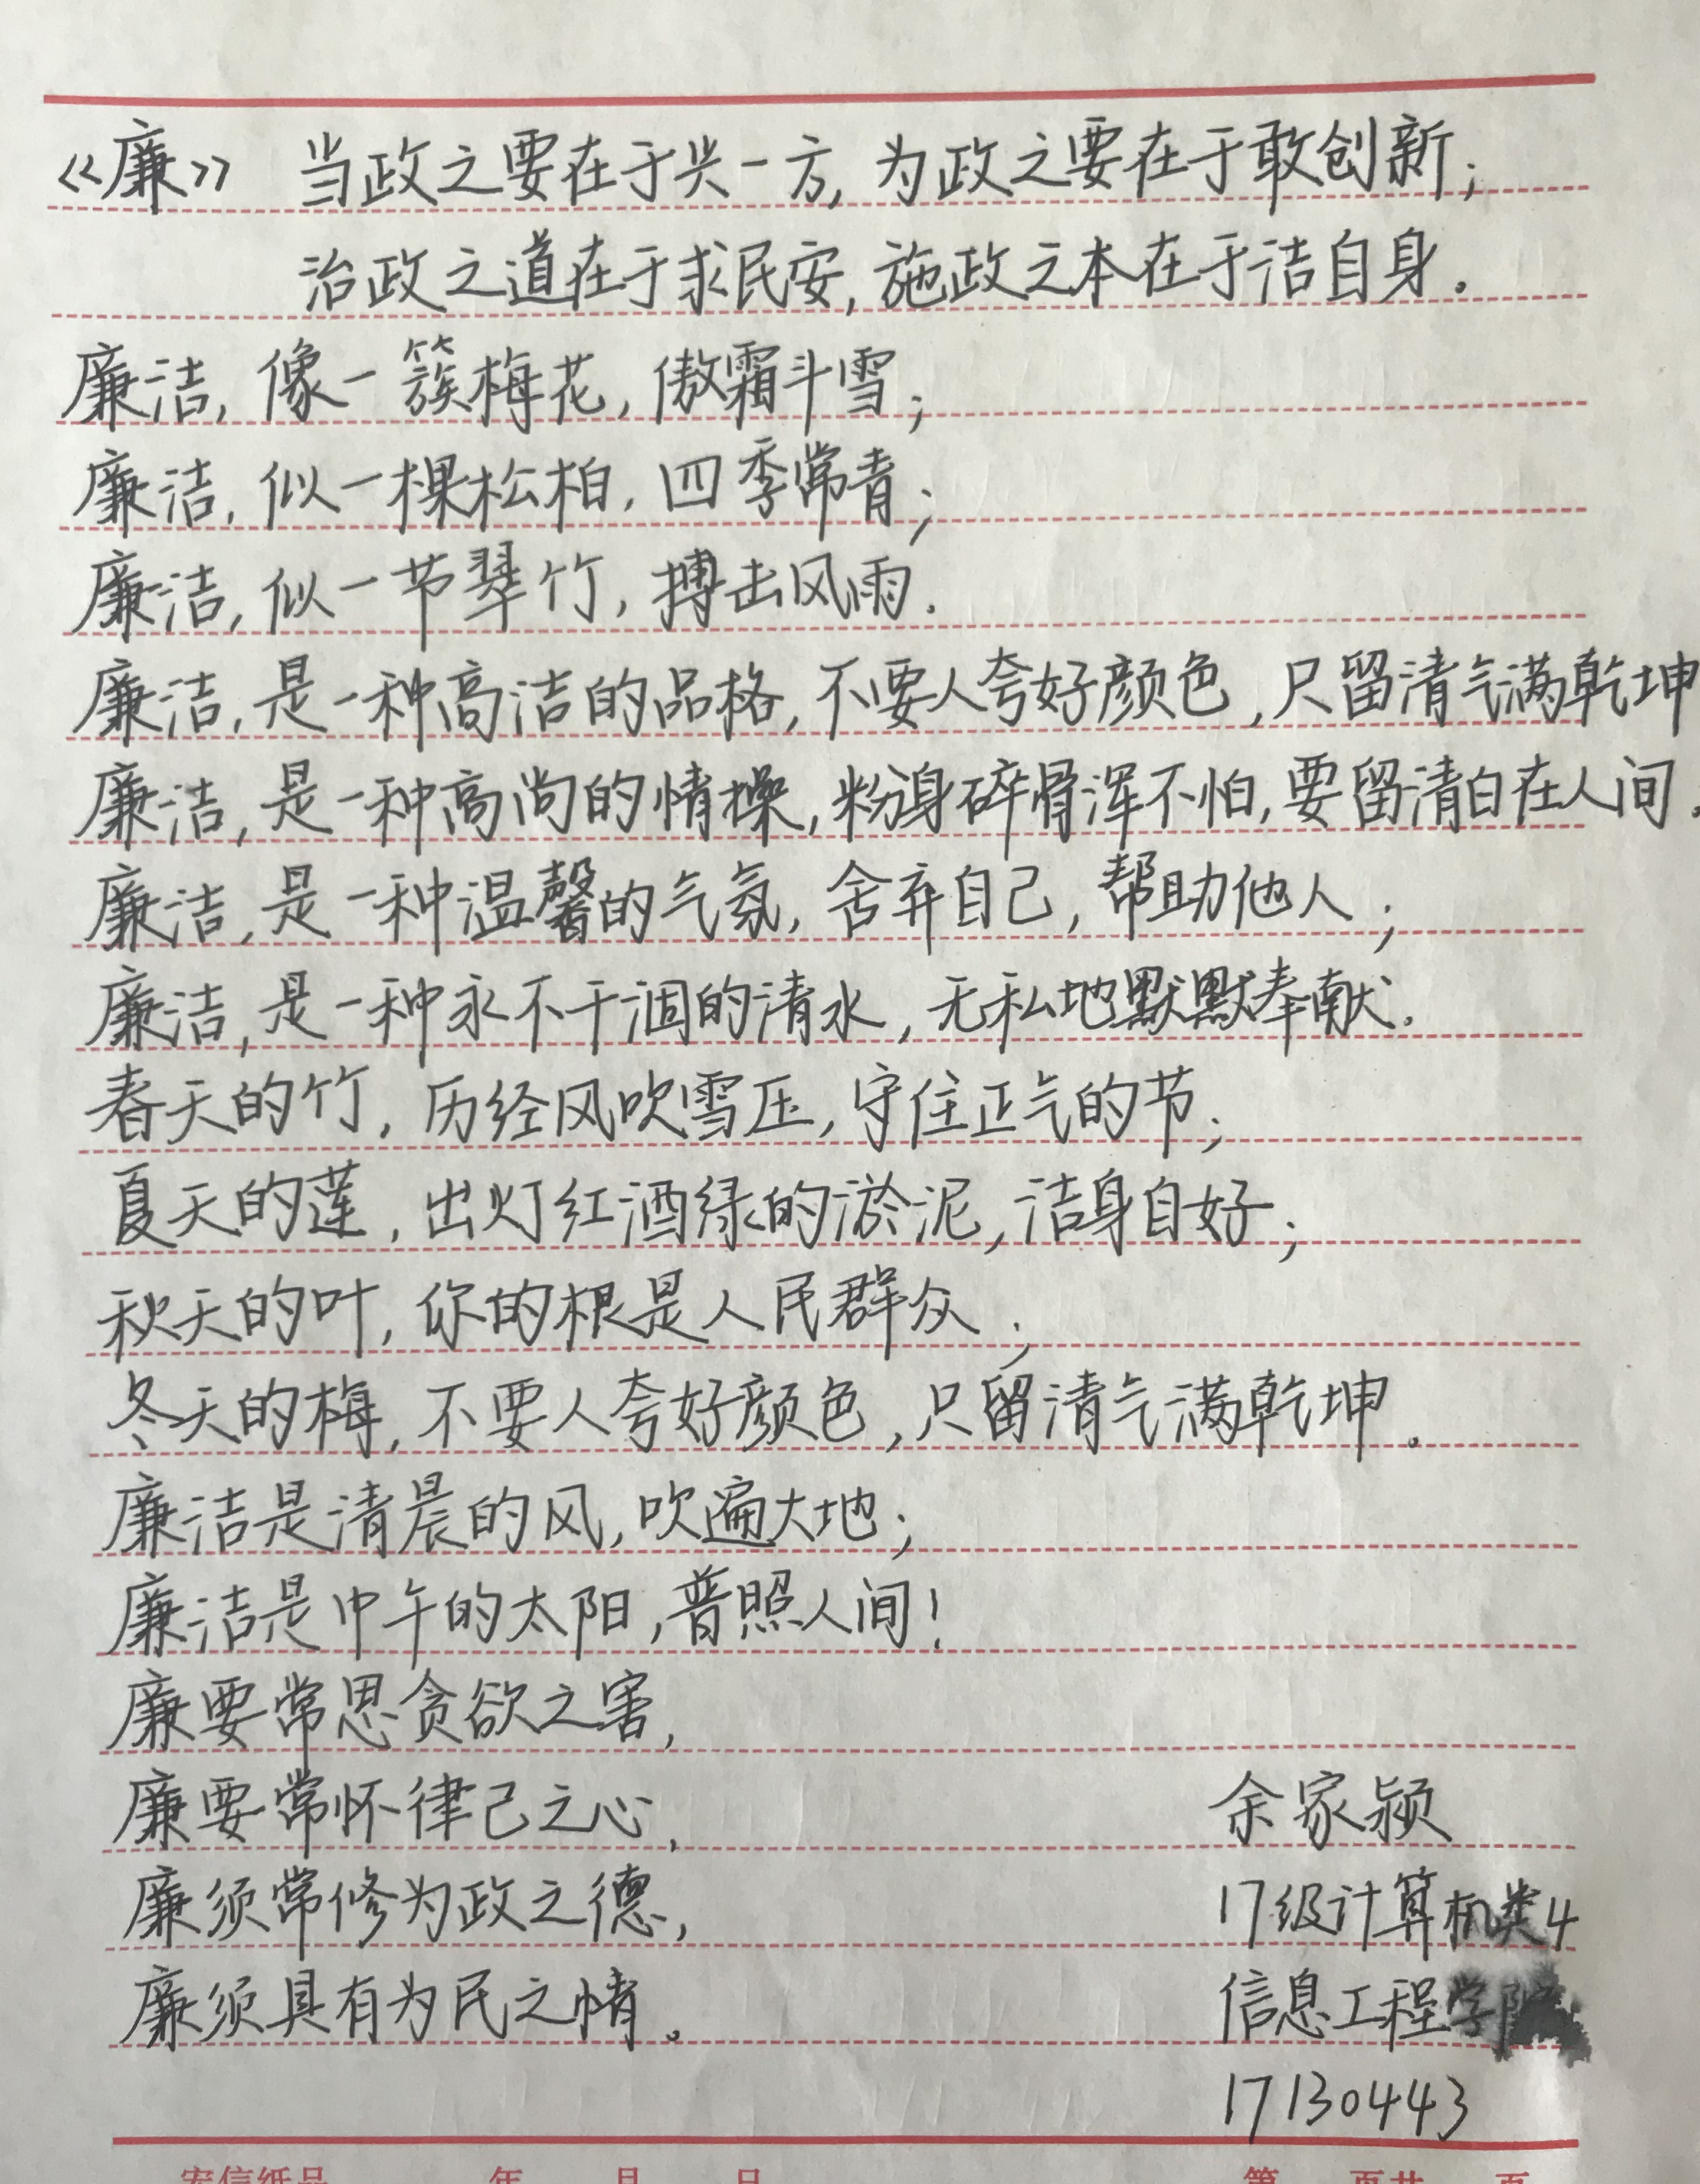 《廉》 当政之要在于兴一方,为政之要在于敢创新;
治政之道在于求民安,施政之本在于洁自身.
廉洁,像一簇梅花,傲霜斗雪;
廉洁,似一棵松柏,四季常青;
廉洁,似一节翠竹,搏击风雨.
廉洁,是一种高洁的品格,不要人夸好颜色,只留清气满乾坤
廉洁,是一种高尚的情操,粉身碎骨浑不怕,要留清白在人间.
廉洁,是一种温馨的气氛,舍弃自己,帮助他人;
廉洁,是一种永不干涸的清水,无私地默默奉献.
春天的竹,历经风吹雪压,守住正气的节;
夏天的莲,出灯红酒绿的淤泥,洁身自好;
秋天的叶,你的根是人民群众;
冬天的梅,不要人夸好颜色,只留清气满乾坤。
廉洁是清晨的风,吹遍大地;
廉洁是中午的太阳,普照人间!
廉要常思贪欲之害,
廉要常怀律己之心,
廉须常修为政之德,
廉须具有为民之情。
余家颍
17级计算机类4
信息工程学院
17130443
年 月 日 第 页共 页